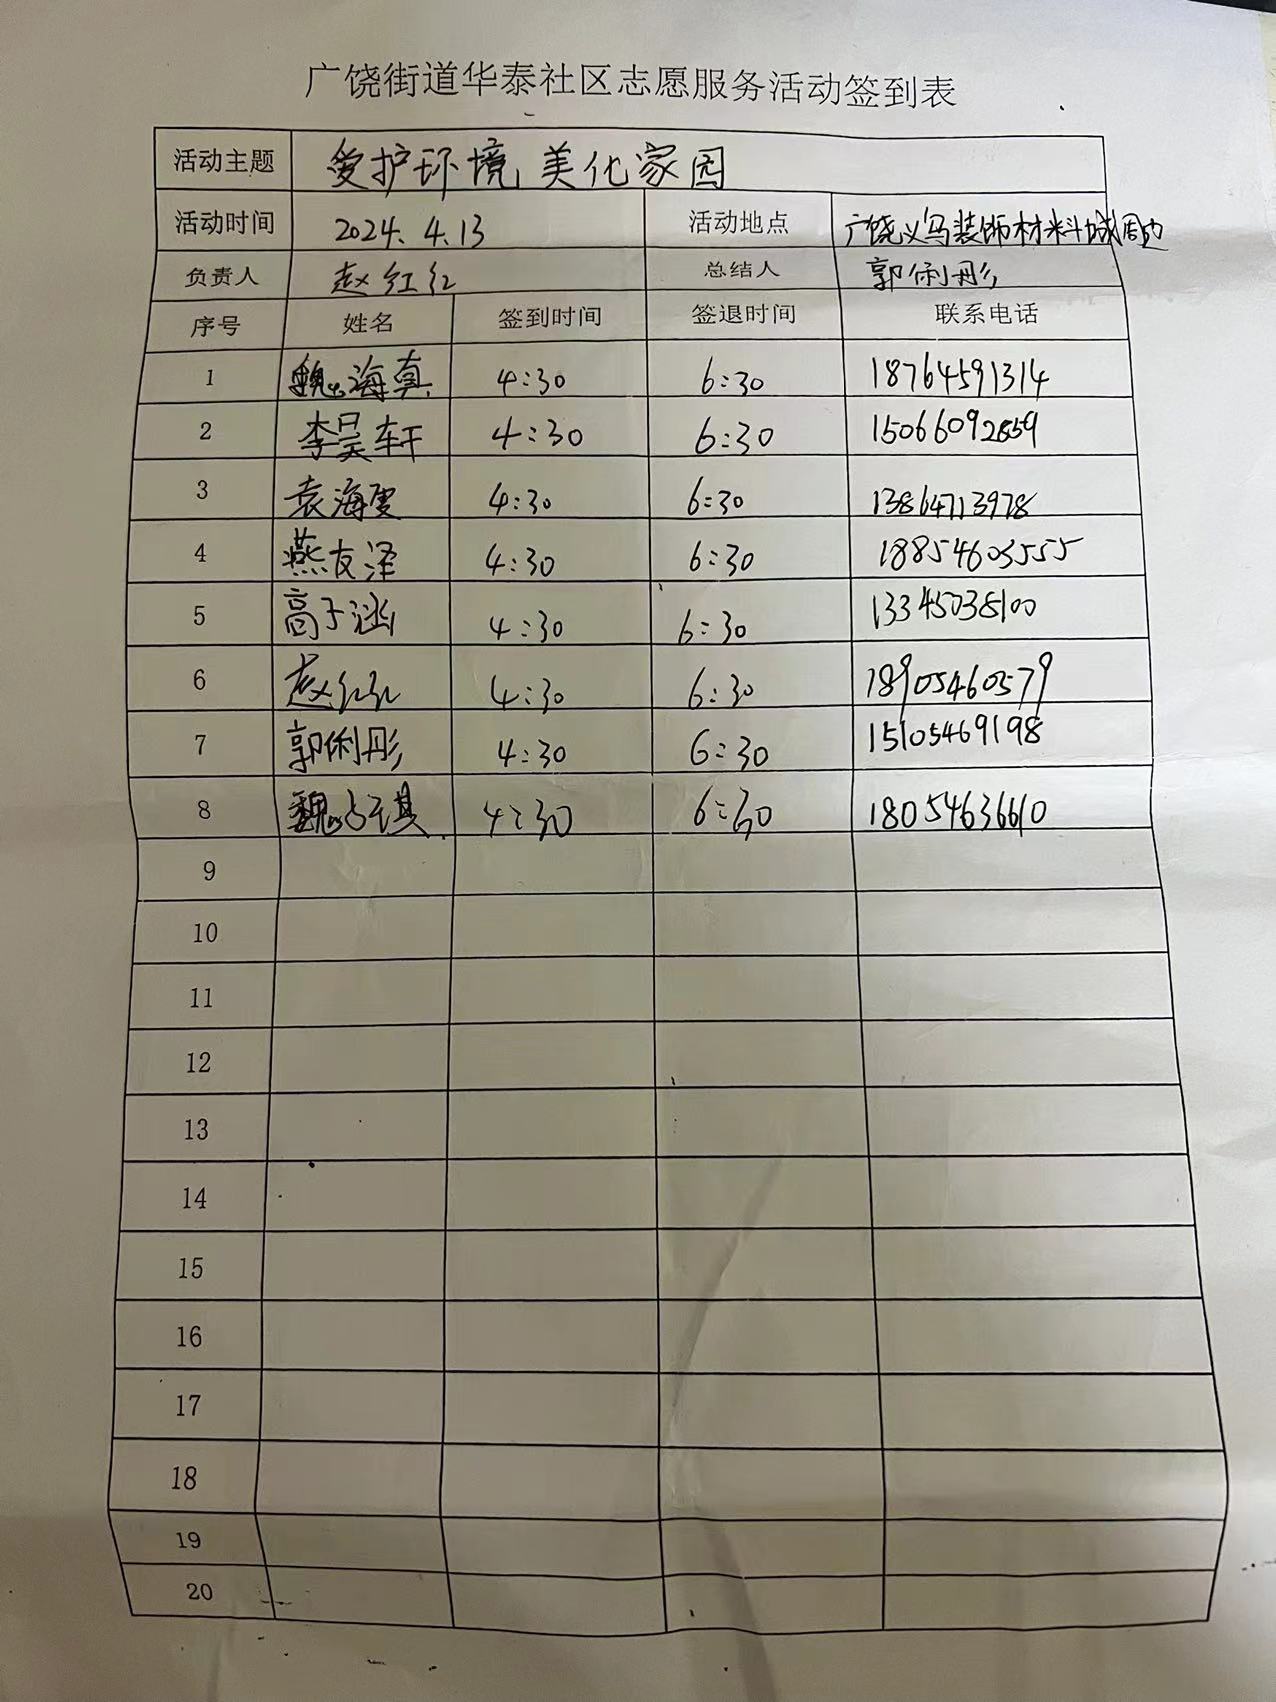 广饶街道华泰社区志愿服务活动签到表
活动主题 爱护环境 美化家园
活动时间 2024.4.13 活动地点 广饶义乌装饰材料城周边
负责人 赵红红 总结人 郭俐彤
序号 姓名 签到时间 签退时间 联系电话
1 魏海真 4:30 6:30 18764591314
2 李昊轩 4:30 6:30 15066092859
3 袁海雯 4:30 6:30 13864713978
4 燕友泽 4:30 6:30 18854603555
5 高子涵 4:30 6:30 13345038100
6 赵红红 4:30 6:30 18905460579
7 郭俐彤 4:30 6:30 15105469198
8 4:30 6:30 18054636610
9
10
11
12
13
14
15
16
17
18
19
20